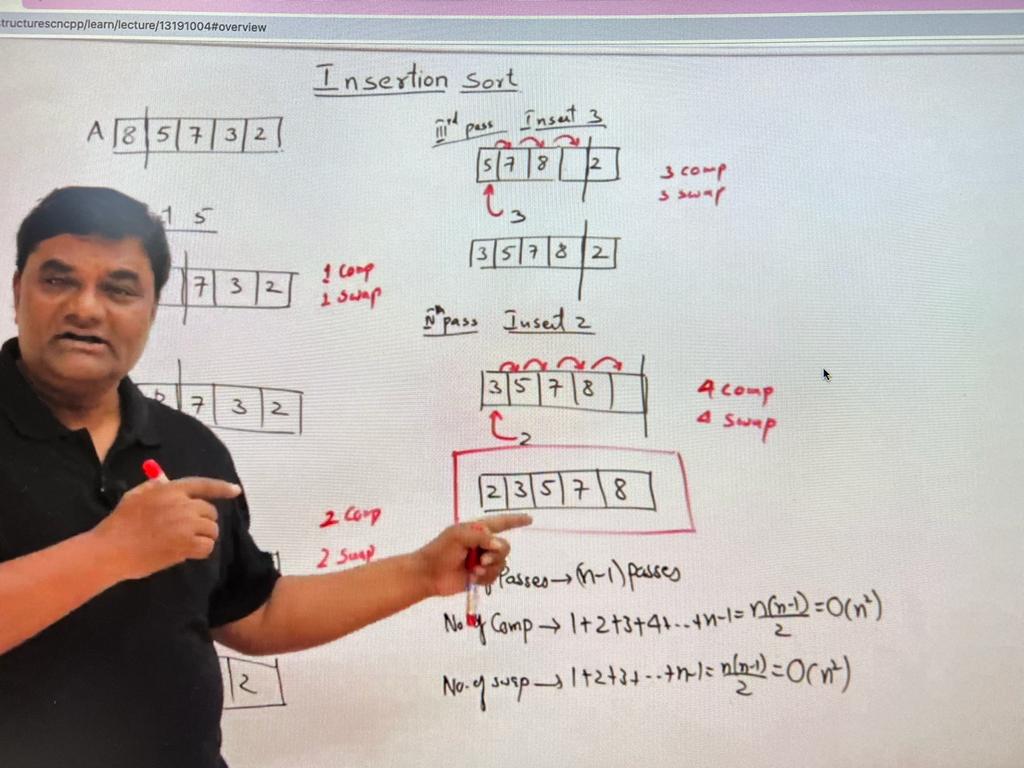 tructurescncpp/learn/lecture/13191004#overview
Insertion Sort
A 8 5 7 3 2
5
7 3 2
1 Comp
1 Swap
7 3 2
2 Comp
2 Swap
2
IIIrd pass Insert 3
5 7 8 2
3
3 comp
3 swap
3 5 7 8 2
pass Insert 2
3 5 7 8
2
4 Comp
4 Swap
2 3 5 7 8
Passes → (n-1) passes
No. of Comp → 1+2+3+4+...+n-1 = n(n-1)/2 = O(n²)
No. of swap → 1+2+3+...+n-1 = n(n-1)/2 = O(n²)